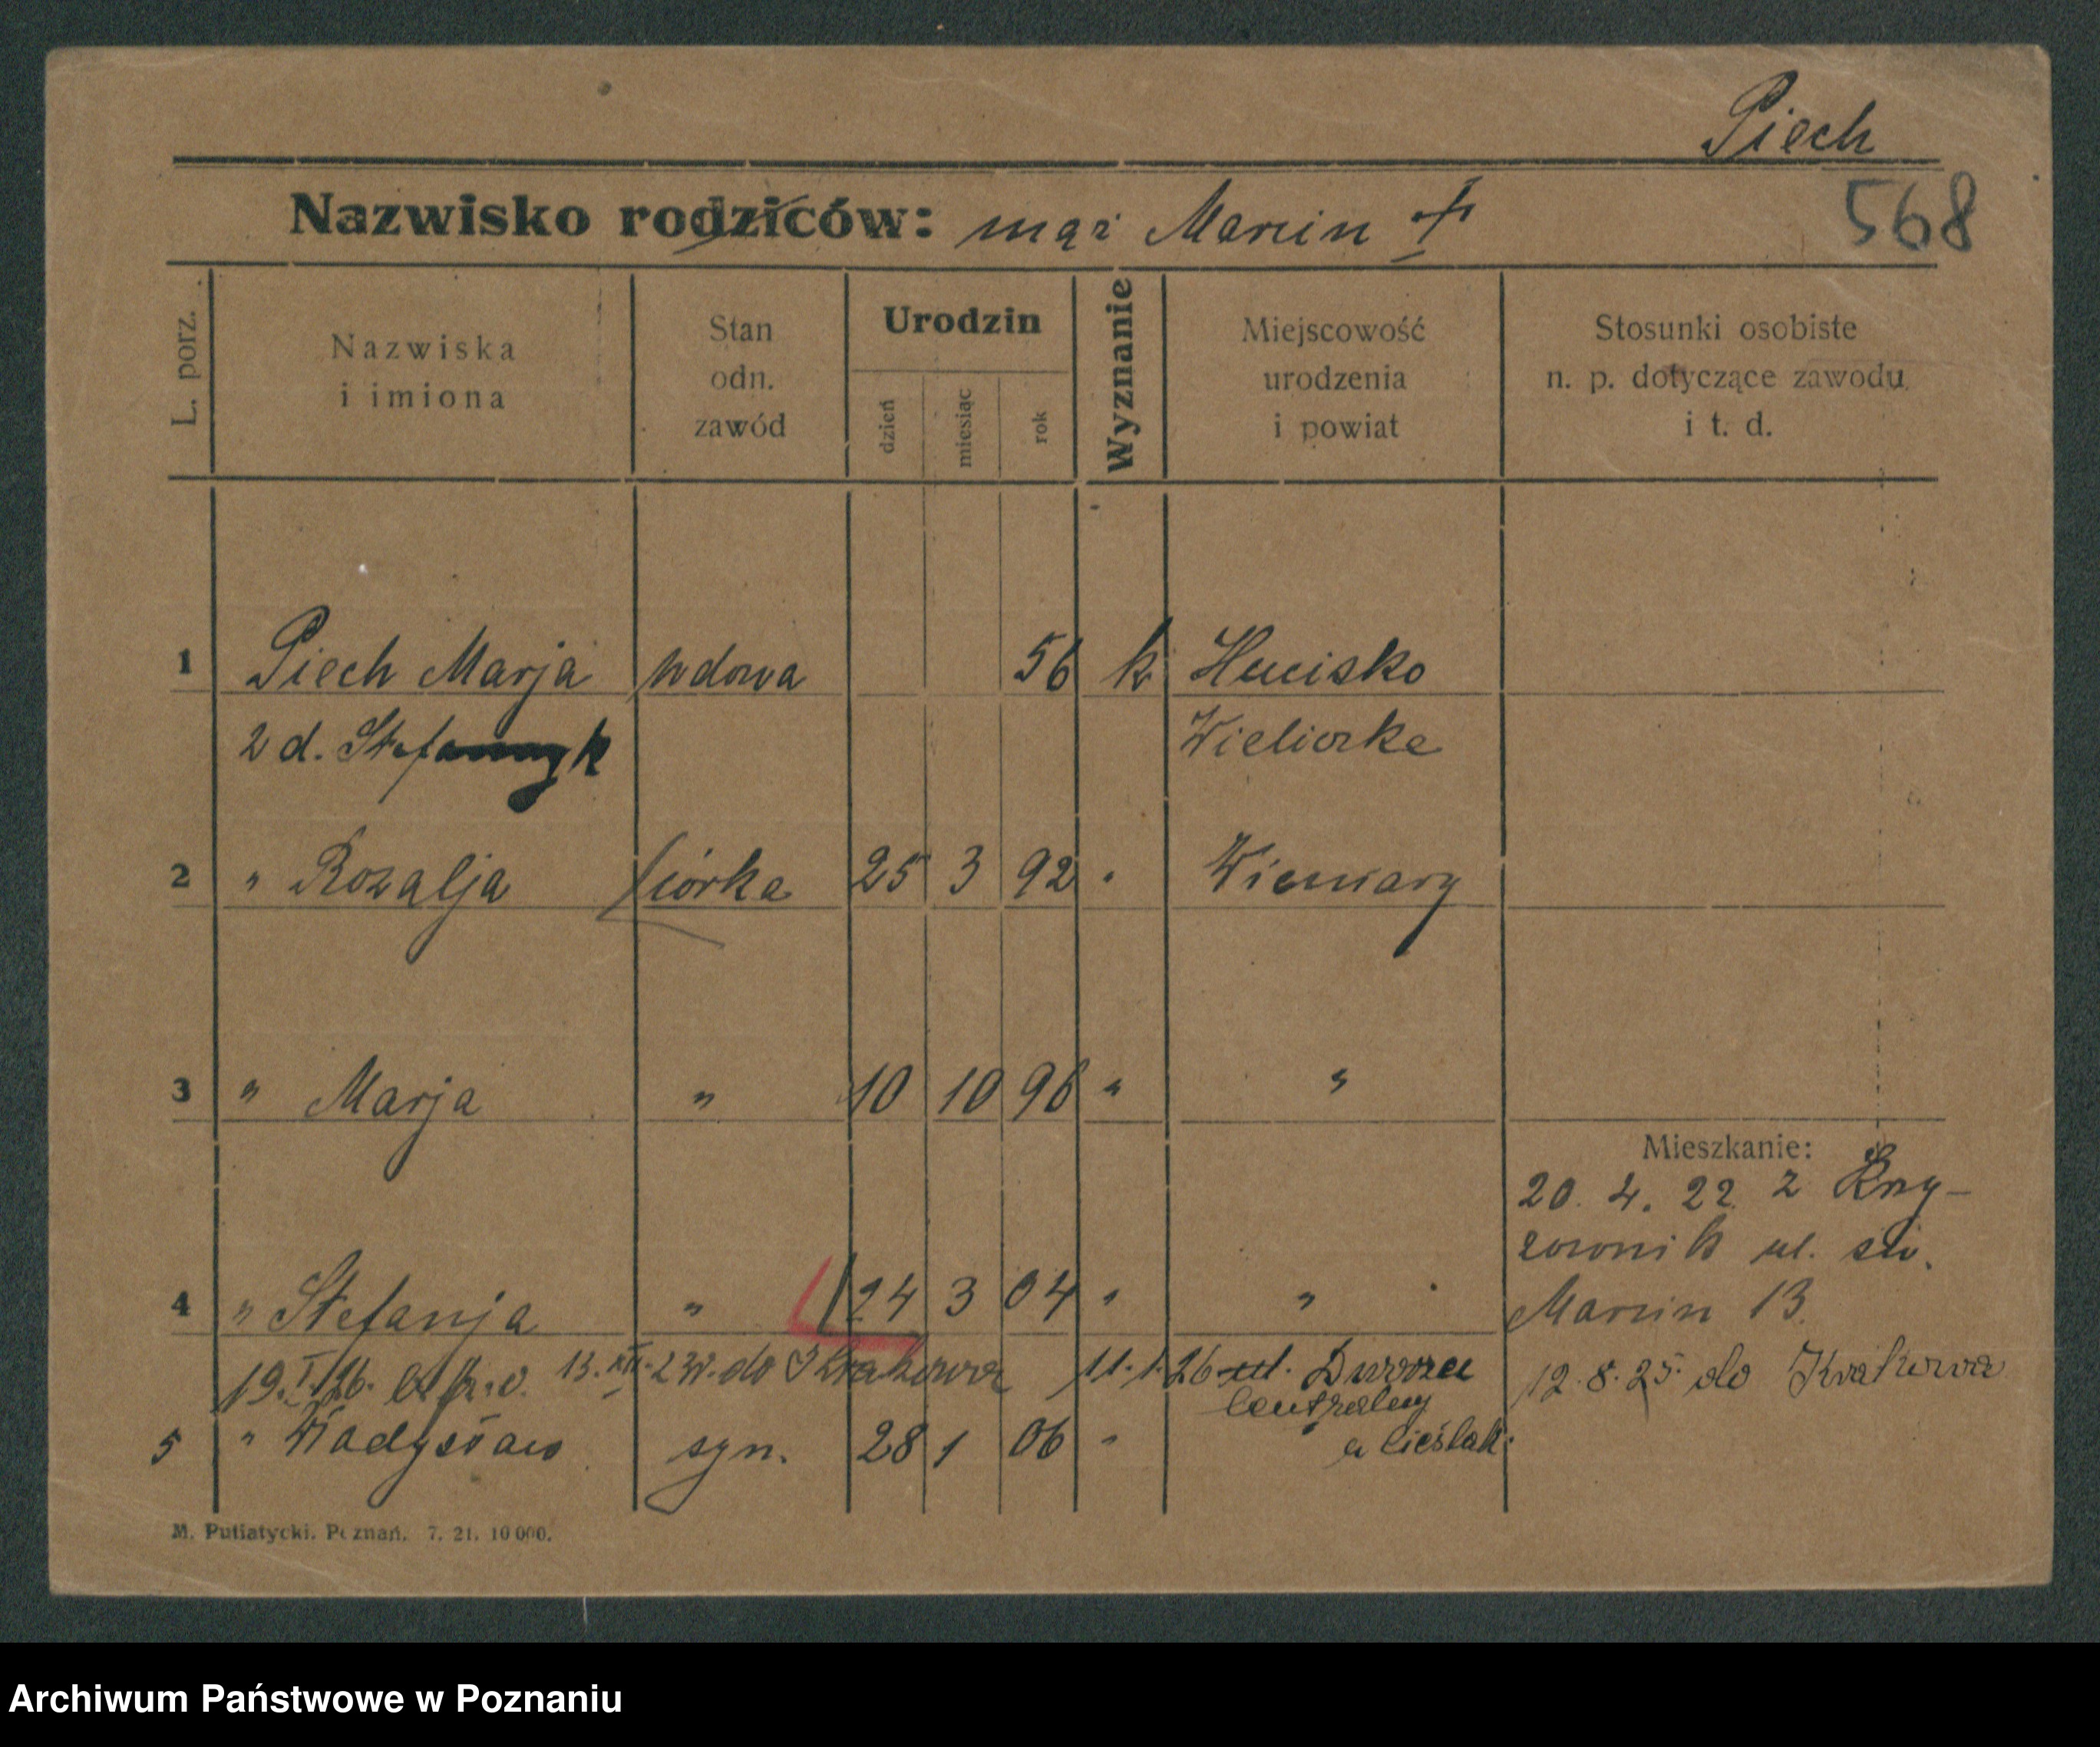 Piech
Nazwisko rodziców: mąż Marcin +
568
L. porz.
Nazwiska
i imiona
Stan
odn.
zawód
Urodzin
dzień
miesiąc
rok
Wyznanie
Miejscowość
urodzenia
i powiat
Stosunki osobiste
n. p. dotyczące zawodu
i t. d.
1 Piech Marja wdowa 56 k Hucisko
2 d. Wieliczka
2 " Rozalja córka 25 3 92 "
3 " Marja " 10 10 96 " "
Mieszkanie:
20. 4. 22 z Krzy-
żownik ul. św.
Marcin 13.
4 " Stefanja " 24 3 04 " "
19. I. 26. 13. XII. do Krakowa 11. 1. 26 ul. Dworzec
Centralny
12. 8. 25. do Krakowa
5 " Władysław syn. 28 1 06 " a Cieślak.
M. Putiatycki. Poznań. 7. 21. 10 000.
Archiwum Państwowe w Poznaniu